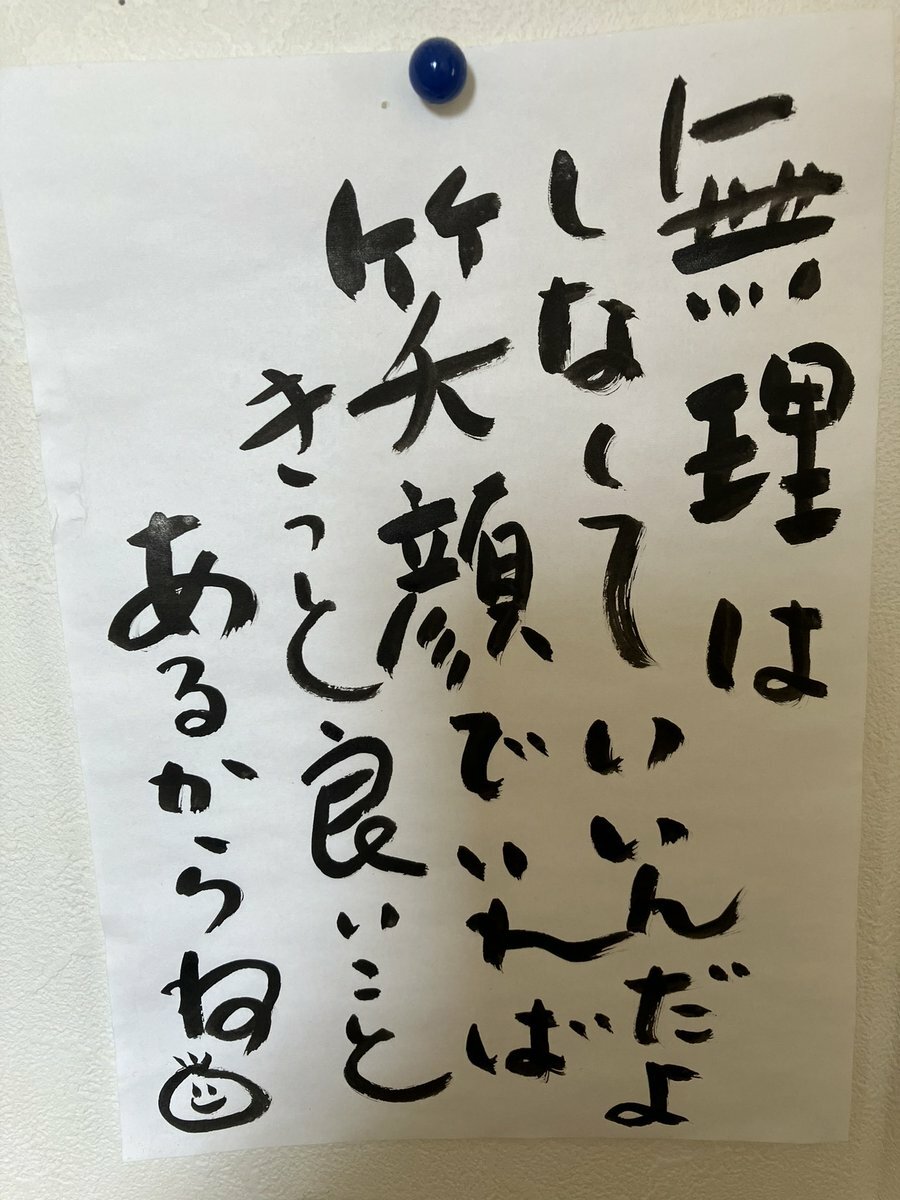 無理は
しなくていいんだよ
笑顔でいれば
きっと良いこと
あるからね